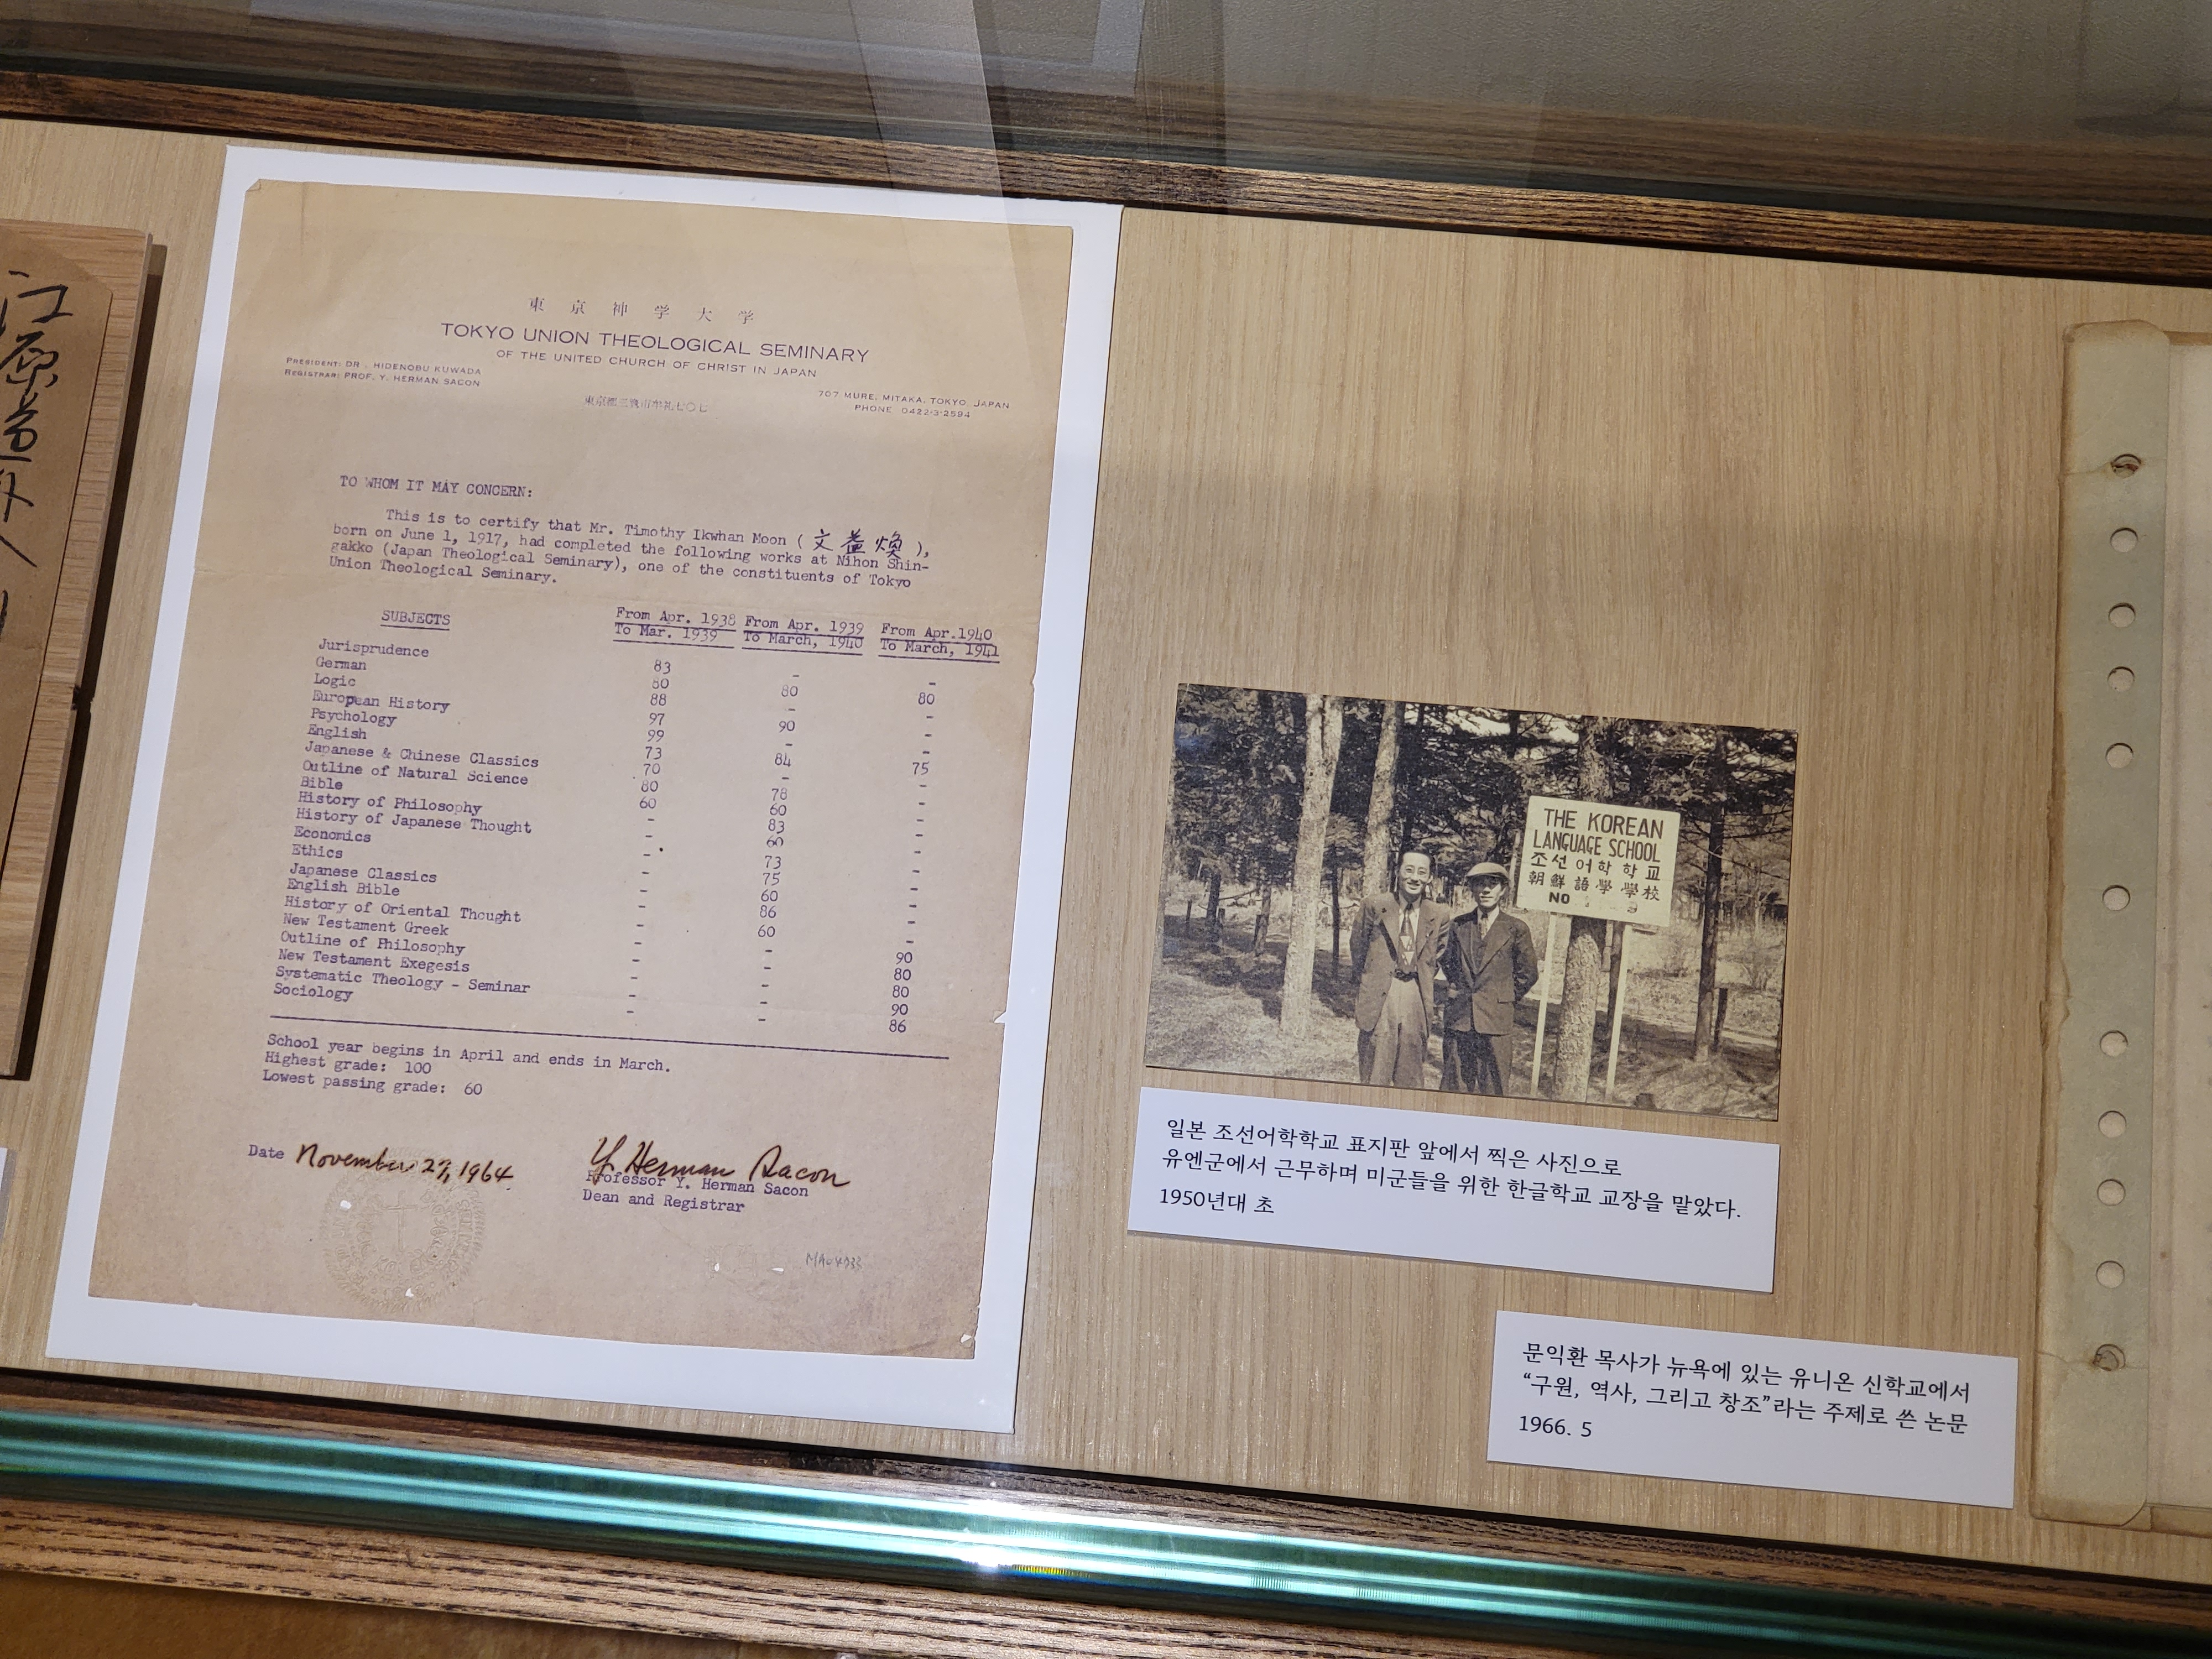 東京神学大学
TOKYO UNION THEOLOGICAL SEMINARY
OF THE UNITED CHURCH OF CHRIST IN JAPAN
PRESIDENT: DR. HIDENOBU KUWADA
REGISTRAR: PROF. Y. HERMAN SACON
707 MURE, MITAKA, TOKYO, JAPAN
PHONE 0422-3-2594
東京都三鷹市牟礼七〇七
TO WHOM IT MAY CONCERN:
This is to certify that Mr. Timothy Ikwhan Moon (文益煥),
born on June 1, 1917, had completed the following works at Nihon Shin-
gakko (Japan Theological Seminary), one of the constituents of Tokyo
Union Theological Seminary.
SUBJECTS From Apr. 1938 From Apr. 1939 From Apr.1940
To Mar. 1939 To March, 1940 To March, 1941
Jurisprudence 83 - -
German 80 80 80
Logic 88 - -
European History 97 90 -
Psychology 99 - -
English 73 84 75
Japanese & Chinese Classics 70 - -
Outline of Natural Science 80 78 -
Bible 60 60 -
History of Philosophy - 83 -
History of Japanese Thought - 60 -
Economics - 73 -
Ethics - 75 -
Japanese Classics - 60 -
English Bible - 86 -
History of Oriental Thought - 60 -
New Testament Greek - - 90
Outline of Philosophy - - 80
New Testament Exegesis - - 80
Systematic Theology - Seminar - - 90
Sociology - - 86
School year begins in April and ends in March.
Highest grade: 100
Lowest passing grade: 60
Date November 27, 1964
Y. Herman Sacon
Professor Y. Herman Sacon
Dean and Registrar
THE KOREAN
LANGUAGE SCHOOL
조선어학학교
朝鮮語學學校
NO
일본 조선어학학교 표지판 앞에서 찍은 사진으로
유엔군에서 근무하며 미군들을 위한 한글학교 교장을 맡았다.
1950년대 초
문익환 목사가 뉴욕에 있는 유니온 신학교에서
“구원, 역사, 그리고 창조”라는 주제로 쓴 논문
1966. 5